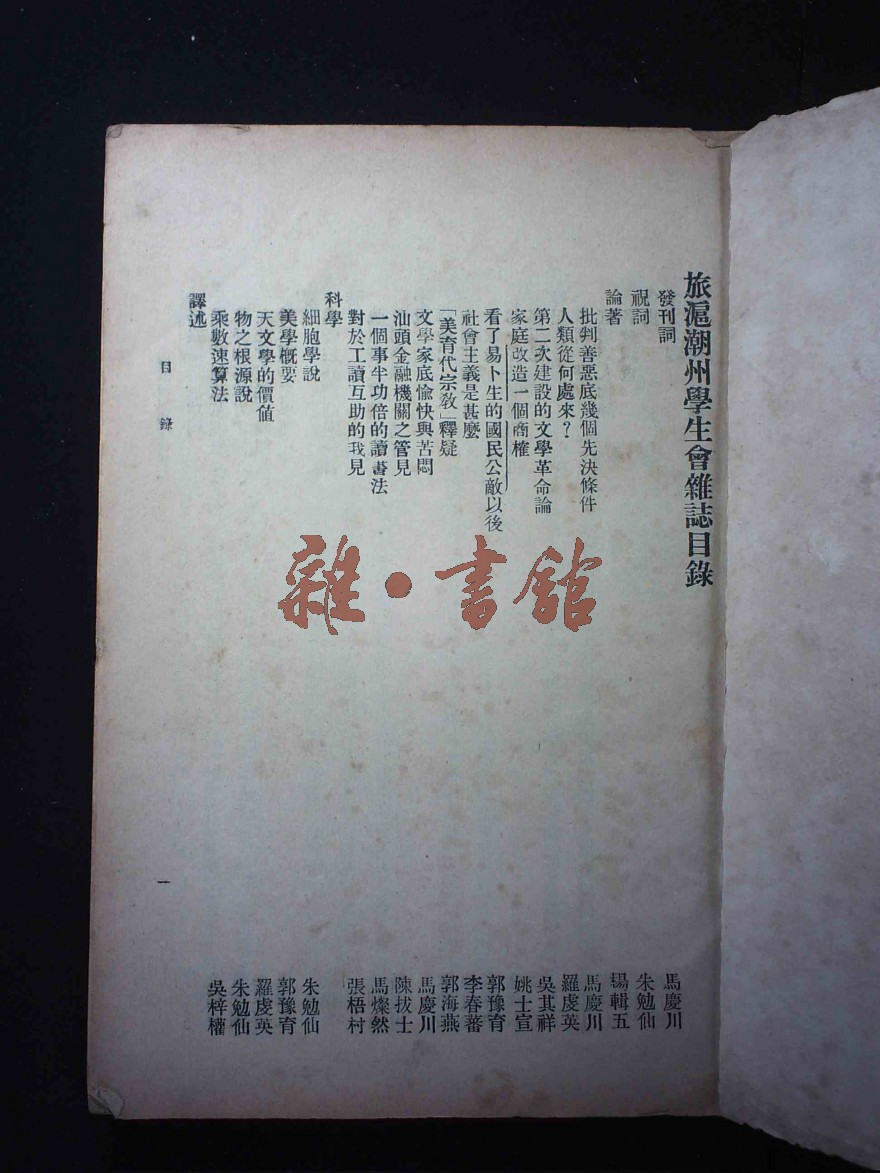 旅滬潮州學生會雜誌目錄
發刊詞 馬慶川
祝詞 朱勉仙
論著 楊輯五
批判善惡底幾個先決條件 馬慶川
人類從何處來？ 羅虔英
第二次建設的文學革命論 吳其祥
家庭改造一個商榷 姚士宣
看了易卜生的國民公敵以後 郭豫育
社會主義是甚麼 李春蕃
「美育代宗教」釋疑 郭海燕
文學家底愉快與苦悶 馬慶川
汕頭金融機關之管見 陳拔士
一個事半功倍的讀書法 馬燦然
對於工讀互助的我見 張梧村
科學
細胞學說 朱勉仙
美學概要 郭豫育
天文學的價值 羅虔英
物之根源說 朱勉仙
乘數速算法 吳梓權
譯述
目錄 一
雜·書館